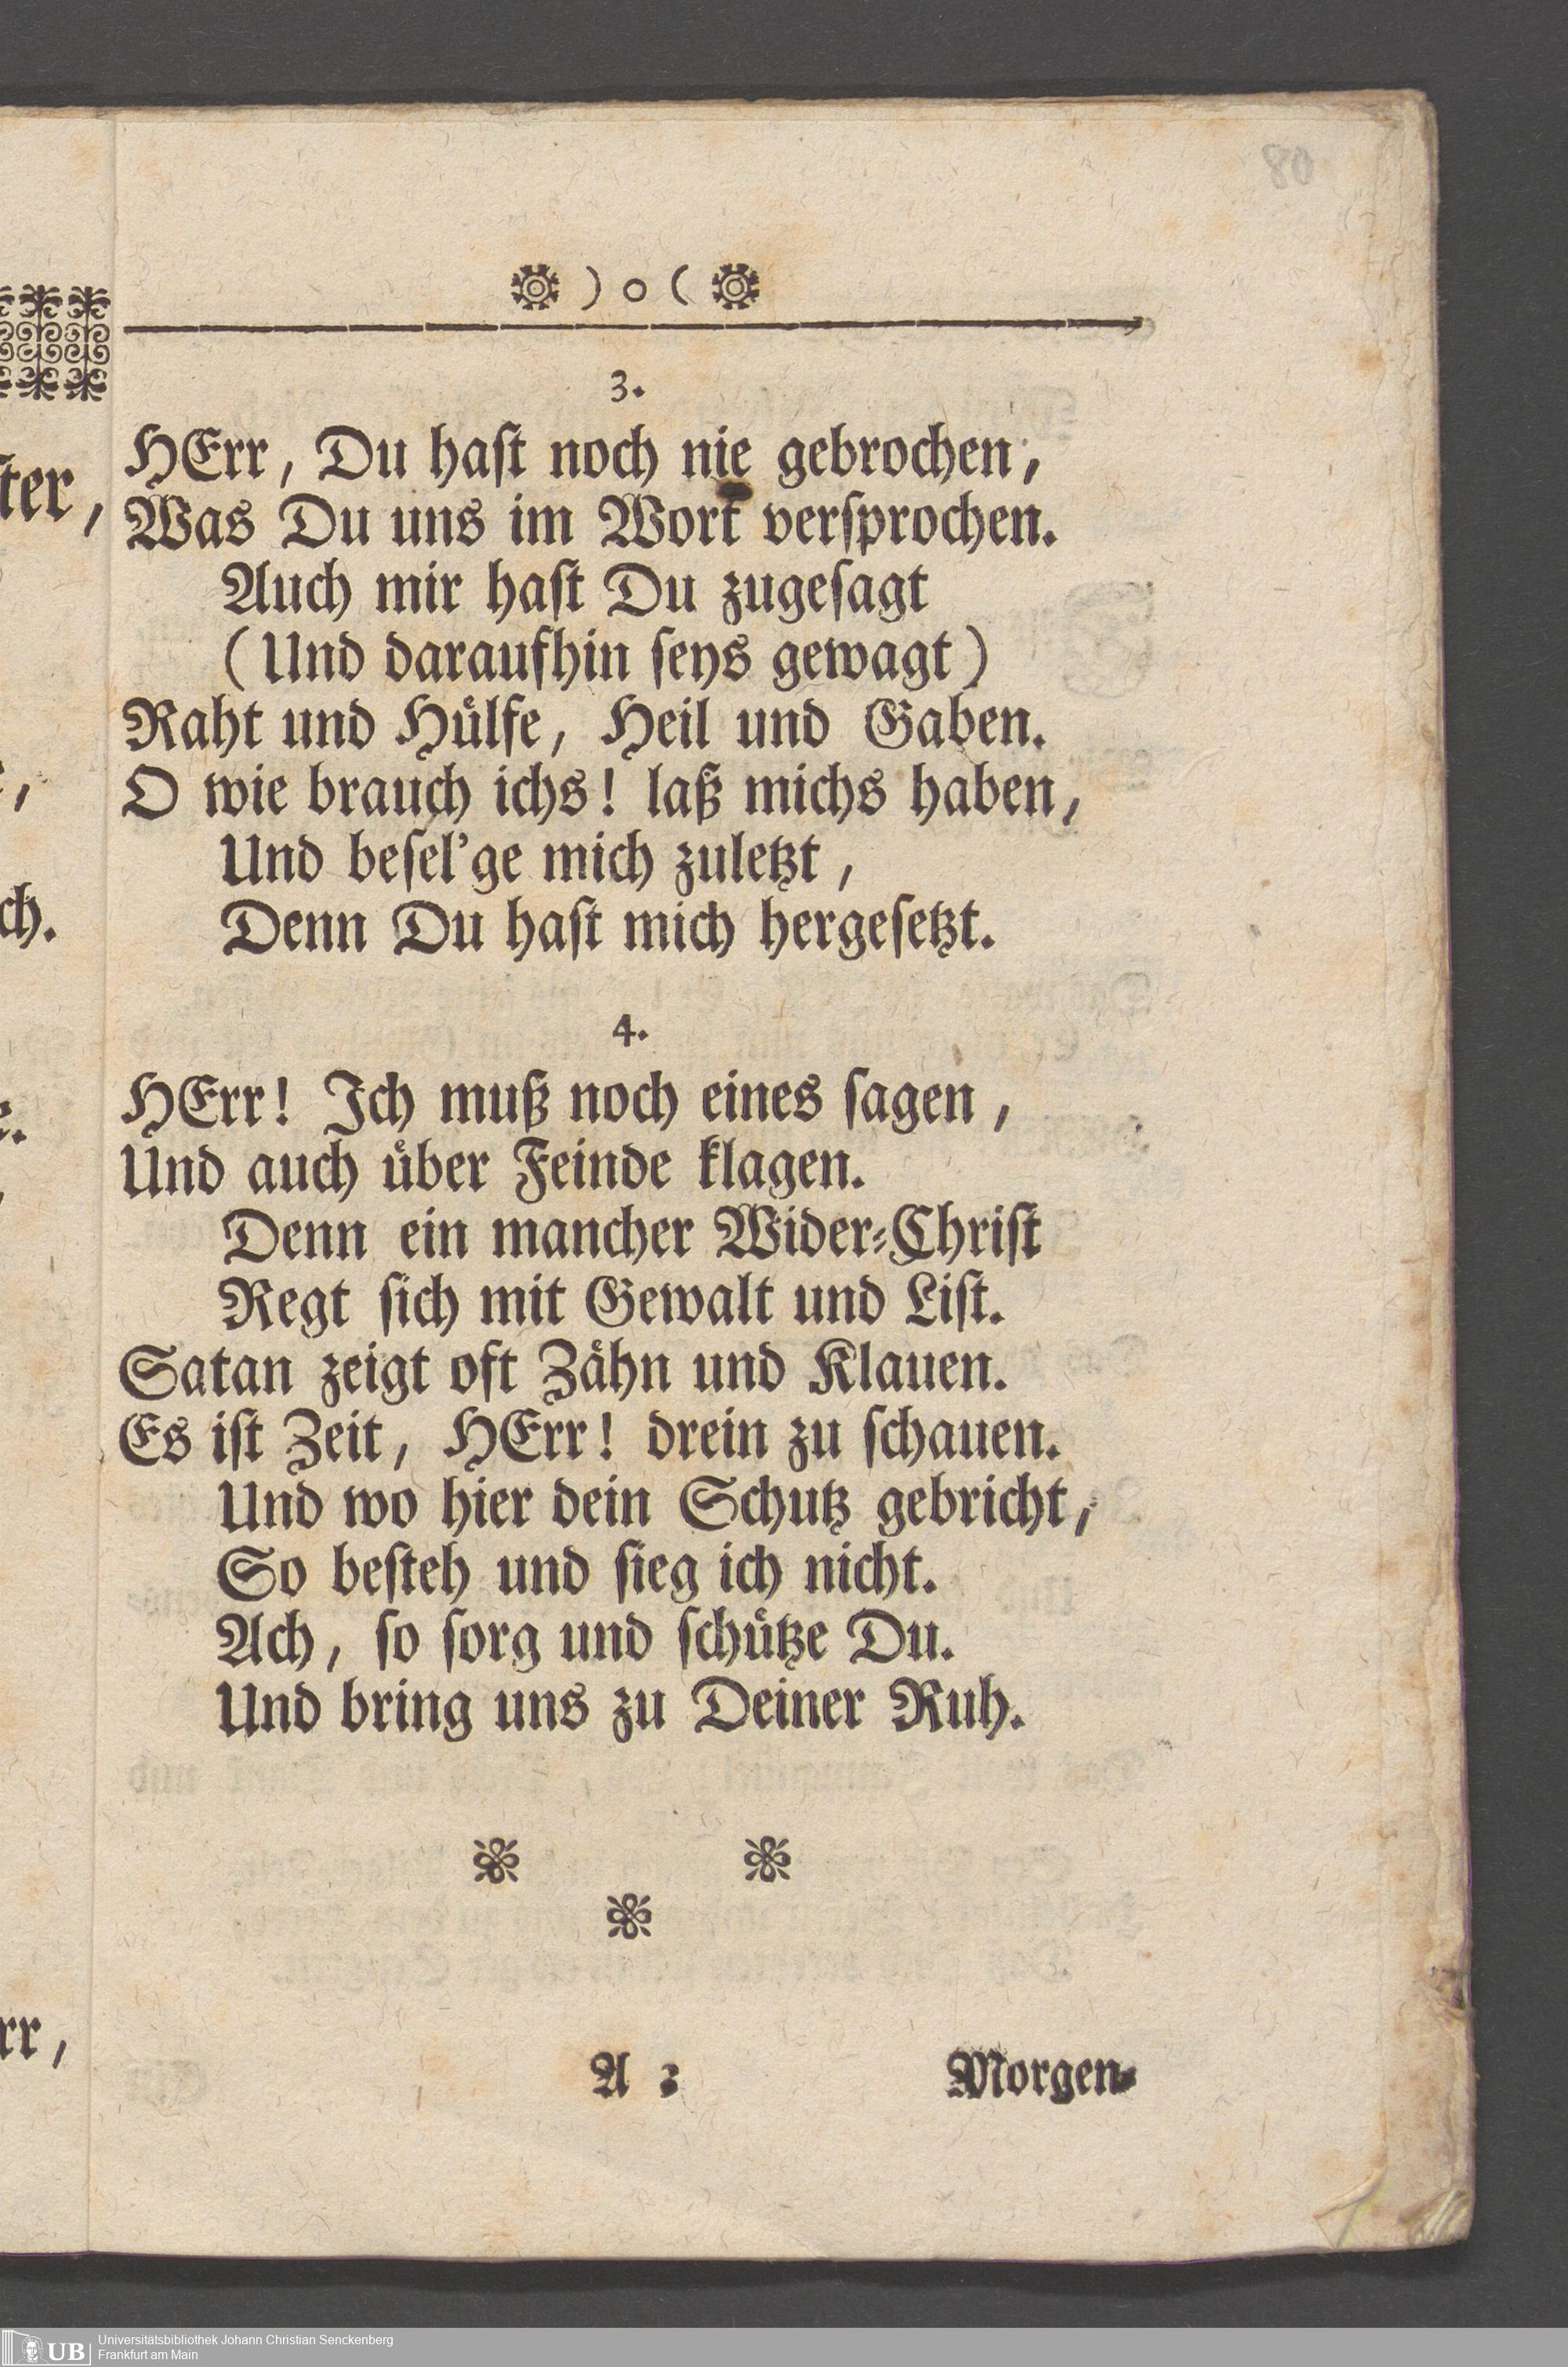 80
) o (
3.
HErr, Du haſt noch nie gebrochen,
Was Du uns im Wort verſprochen.
Auch mir haſt Du zugeſagt
(Und daraufhin ſeys gewagt)
Raht und Huͤlfe, Heil und Gaben.
O wie brauch ichs! laß michs haben,
Und beſel'ge mich zuletzt,
Denn Du haſt mich hergeſetzt.
4.
HErr! Ich muß noch eines ſagen,
Und auch uͤber Feinde klagen.
Denn ein mancher Wider⸗Chriſt
Regt ſich mit Gewalt und Liſt.
Satan zeigt oft Zaͤhn und Klauen.
Es iſt Zeit, HErr! drein zu ſchauen.
Und wo hier dein Schutz gebricht,
So beſteh und ſieg ich nicht.
Ach, ſo ſorg und ſchuͤtze Du.
Und bring uns zu Deiner Ruh.
A
Morgen⸗
UB Universitätsbibliothek Johann Christian Senckenberg
Frankfurt am Main